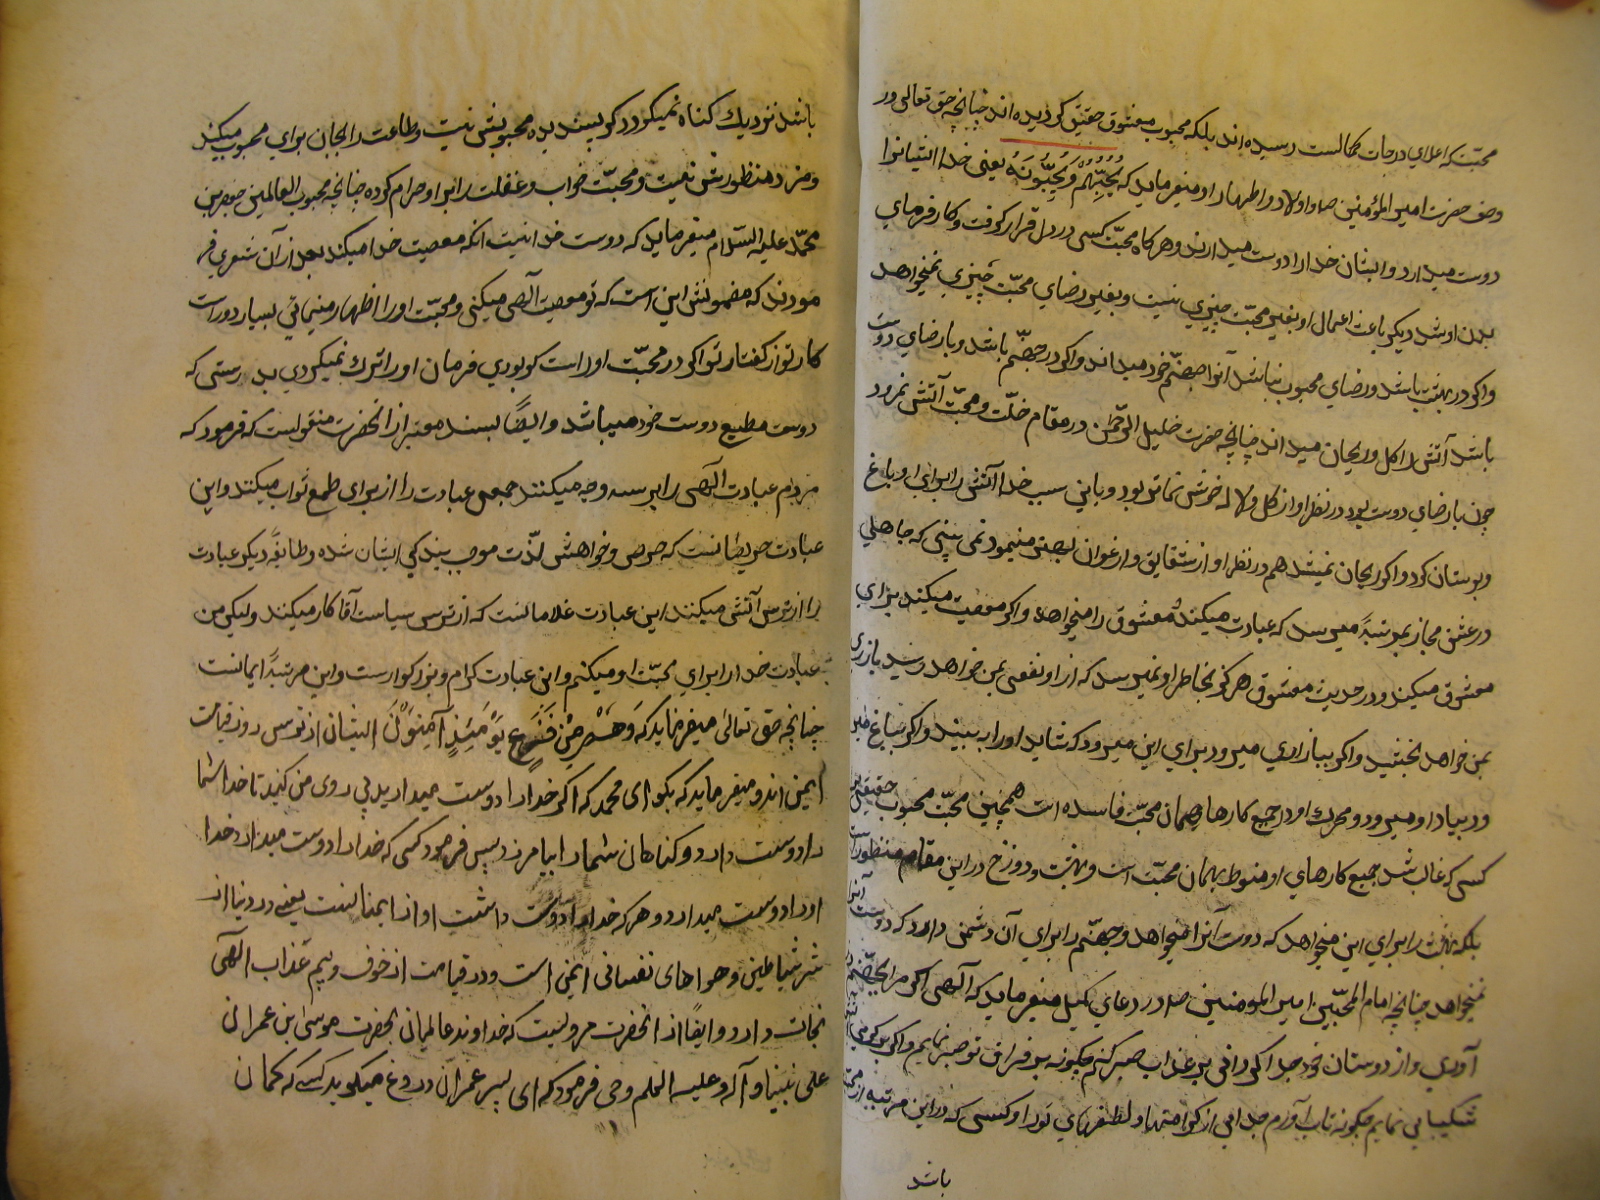 محبّت که اعلای درجات کمالست رسیده اند بلکه محبوب و معشوق حقیقی گردیده اند چنانچه حق تعالی در
وصف حضرت امیر المؤمنین ص و اولاد و اطهار او میفرماید که یُحِبُّهُم وَ یُحِبُّونَهُ یعنی خدا ایشانرا
دوست میدارد و ایشان خدا را دوست میدارند و هرکاه محبّت کسی در دل قرار گرفت و کار فرمای
بدن او شد دیگر باعث اعمال او بغیر محبّت چیزی نیست و بغیر رضای محبّت چیزی نمیخواهد
و اگر در بهشت باشد و رضای محبوب نباشد آنرا جهنّم خود میداند و اگر در جهنّم باشد و با رضای دوست
باشد آتش را کل و ریحان میداند چنانچه حضرت خلیل الرّحمن در مقام خلّت و محبّت آتش نمرود
چون با رضای دوست بود در نظر او از کل و لاله خوش نماتر بود و باین سبب خدا آتش را برای او باغ
و بوستان کرد و اگر ریحان نمیشد هم در نظر او از شقایق و ارغوان بهتر مینمود نمی بینی که جاهلی
در عشق مجاز بمرتبهٔ میرسد که عبادت میکند معشوق را میخواهد و اگر معصیت میکند برای
معشوق میکند و در حدیث معشوق هرگز بخاطر او نمیرسد که از او نفعی بمن خواهد رسید یا زری
بمن خواهد بخشید و اگر ببازاری میرود برای این میرود که شاید او را ببیند و اگر بباغ
و بیاد او میرود و محرك او در جمیع کارها همان محبّت فاسده است همچنین محبّت محبوب حقیقی بر
کسی که غالب شد جمیع کارهای او منوط بهمان محبّت است و بهشت و دوزخ در این مقام منظور نیست
بلکه بهشت را برای این میخواهد که دوست آنرا میخواهد و جهنّم را برای آن دشمنی دارد که دوست آنرا
نمیخواهد چنانچه امام المحبّین امیر المومنین ص در دعای کمیل میفرماید که الهی اگر مرا بجهنّم
آوری و از دوستان خود جدا کردانی بر عذاب صبر کنم چگونه بر فراق تو صبر نمایم و اگر بر گرمی
شکیبایی نمایم چگونه تاب آورم جدایی از کرامتها و لطفهای تو را و کسی که در این مرتبه از محبّت
باشد
باشد نزدیك کناه نمیکردد که پسندیدهٔ محبوبش نیست و طاعت را بجان برای محبوب میکند
و مزد منظورش نیست و محبّت خواب و غفلت را بر او حرام کرده چنانچه محبوب العالمین جعفر بن
محمّد علیه السّلام میفرماید که دوست خدا نیست آنکه معصیت خدا میکند بعد از آن شعری فر
مودند که مضمونش این است که تو معصیت الهی میکنی و محبّت او را اظهار مینمائی بسیار دور است
کار تو از کفتار تو اگر در محبّت او راست گو بودی فرمان او را ترك نمیکردی بدرستی که
دوست مطیع دوست خود میباشد و ایضًا بسند معتبر از آنحضرت منقولست که فرمود که
مردم عبادت الٓهی را بر سه وجه میکنند جمعی عبادت را از برای طمع ثواب میکنند و این
عبادت حریصانست که حرص و خواهش لذّت موجب بندکی ایشان شده و طائفهٔ دیگر عبادت
را از ترس آتش میکنند این عبادت غلامانست که از ترس سیاست آقا کار میکنند و لیکن من
عبادت خدا را برای محبّت او میکنم و این عبادت کرام و بزرکوارست و این مرتبهٔ ایمانست
چنانچه حق تعالی میفرماید که وَهُمْ مِنْ فَزَعٍ یَوْمَئِذٍ آمِنُوْنَ ایشان از ترس روز قیامت
ایمن اند و میفرماید که بکو ای محمد که اکر خدا را دوست میدارید پی روی من کنید تا خدا شما
را دوست دارد و کناهان شما را بیامرزد پس فرمود کسی که خدا را دوست میدارد خدا
او را دوست میدارد و هر که خدا او را دوست داشت او از ایمنانست یعنی در دنیا از
شر شیاطین و هواهای نفسانی ایمن است و در قیامت از خوف و بیم عذاب الٓهی
نجات دارد و ایضًا از آنحضرت مرویست که خداوند عالمیان بحضرت موسی ابن عمران
علی نبینا و آله و علیه السلم وحی فرمود که ای پسر عمران دروغ میکوید کسی که کمان